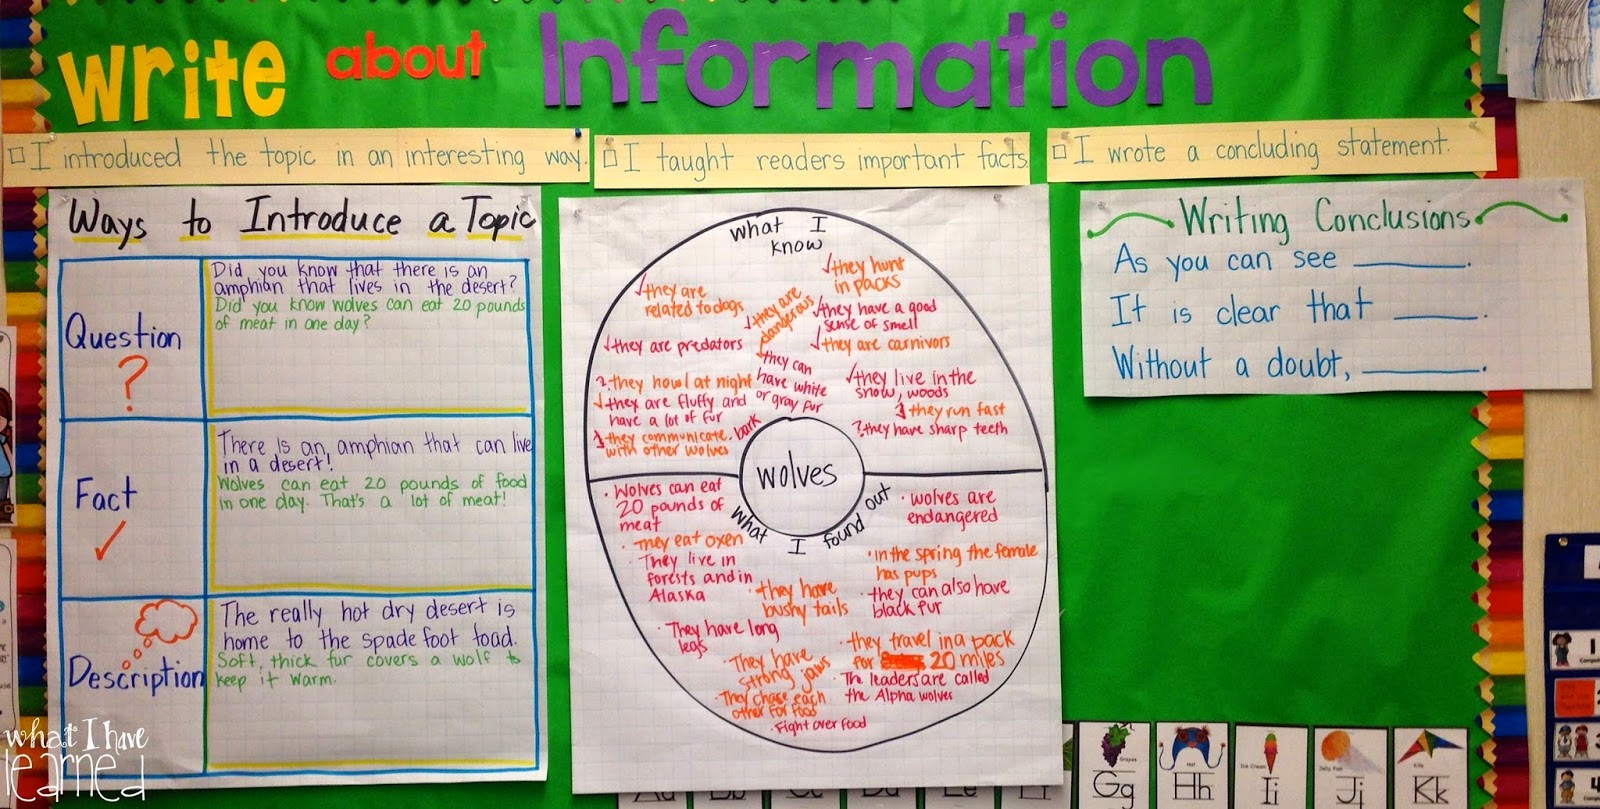 write about Information
□ I introduced the topic in an interesting way.
□ I taught readers important facts
□ I wrote a concluding statement.
Ways to Introduce a Topic
Question
?
Did you know that there is an
amphian that lives in the desert?
Did you know wolves can eat 20 pounds
of meat in one day?
Fact
✓
There is an amphian that can live
in a desert!
Wolves can eat 20 pounds of food
in one day. That's a lot of meat!
Description
The really hot dry desert is
home to the spade foot toad.
Soft, thick fur covers a wolf to
keep it warm.
what I
know
✓they are
related to dogs
✓they hunt
in packs
✓they are
dangerous
✓they have a good
sense of smell
✓they are predators
✓they are carnivors
✓they can
have white
or gray fur
✓they live in the
snow, woods
?they howl at night
✓they are fluffy and
have a lot of fur
?they run fast
?they communicate
with other wolves
-bark
?they have sharp teeth
wolves
what I found out
·Wolves can eat
20 pounds of
meat
·wolves are
endangered
·They eat oxen
·They live in
forests and in
Alaska
·in the spring the female
has pups
·they have
bushy tails
·they can also have
black fur
·They have long
legs
·they travel in a pack
for 20 miles
·They have
strong jaws
·The leaders are called
the Alpha wolves
·They chase each
other for food
·Fight over food
Writing Conclusions
As you can see ______.
It is clear that ______.
Without a doubt, ______.
Grapes
Gg
Hat
Hh
Ice Cream
Ii
Jelly Fish
Jj
Kite
Kk
what I have
learned